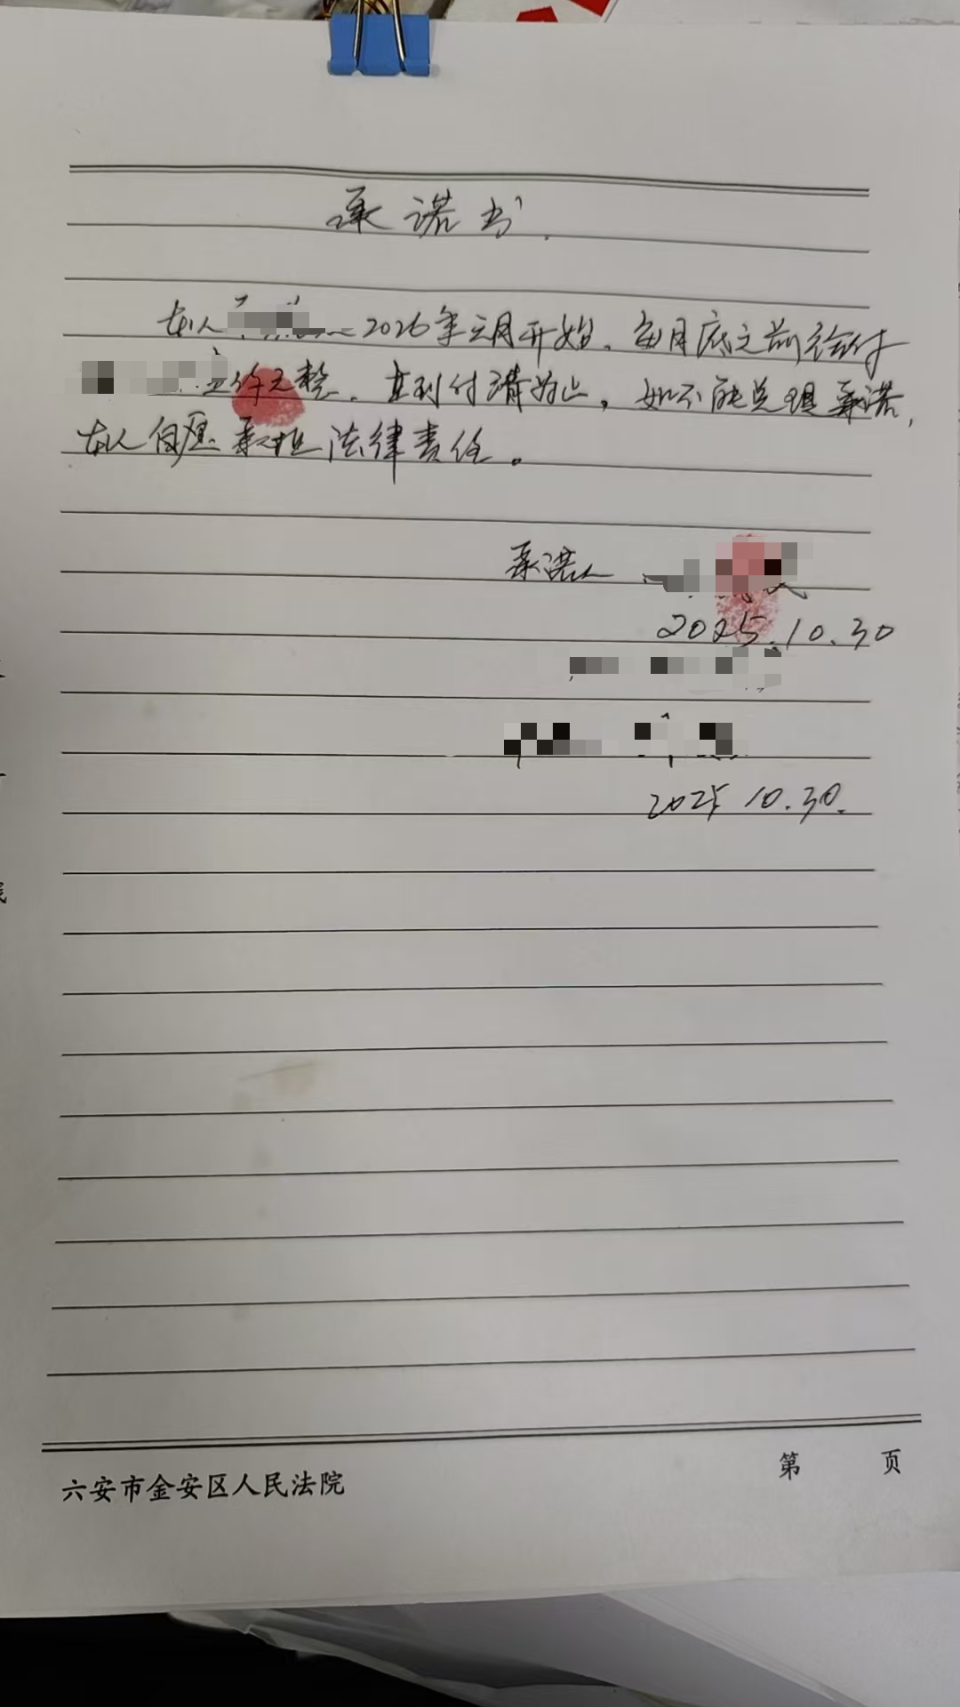 承诺书.
本人 2026年元月开始,每月底之前给付
仟元整,直到付清为止,如不能兑现承诺,
本人自愿承担法律责任。
承诺人
2025.10.30
2025 10.30.
六安市金安区人民法院
第 页